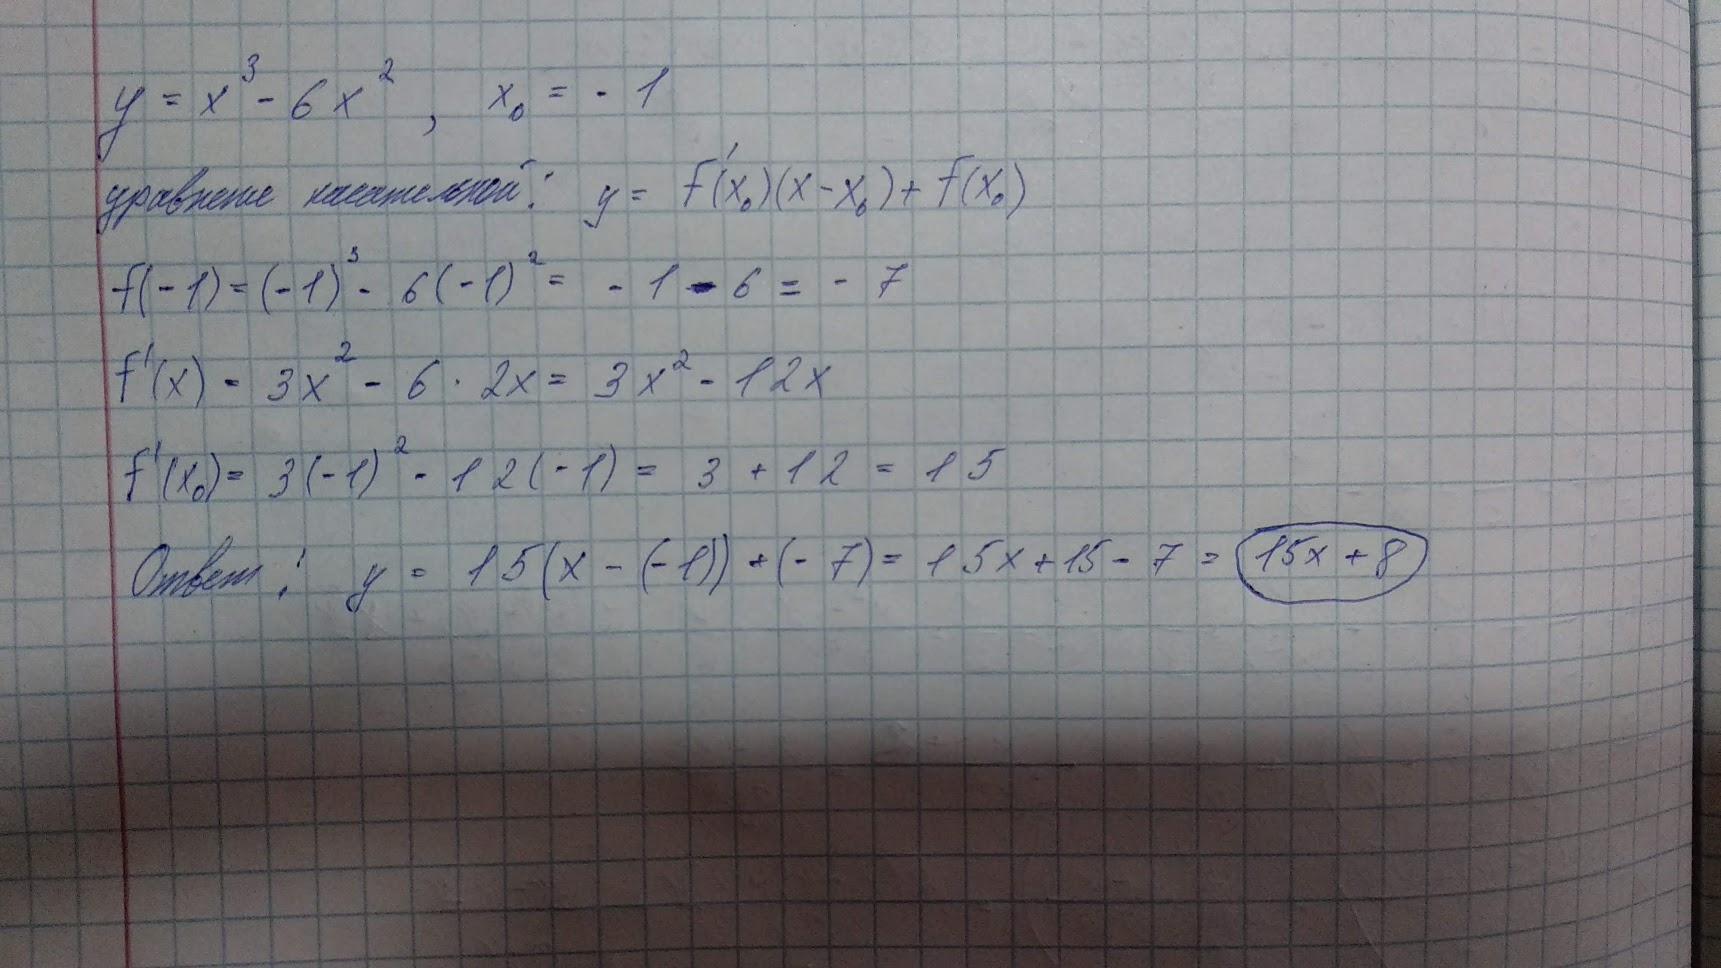 y = x³ - 6x², x₀ = - 1
уравнение касательной: y = f'(x₀)(x - x₀) + f(x₀)
f(-1) = (-1)³ - 6(-1)² = - 1 - 6 = - 7
f'(x) = 3x² - 6 · 2x = 3x² - 12x
f'(x₀) = 3(-1)² - 12(-1) = 3 + 12 = 15
Ответ: y = 15(x - (-1)) + (- 7) = 15x + 15 - 7 = 15x + 8